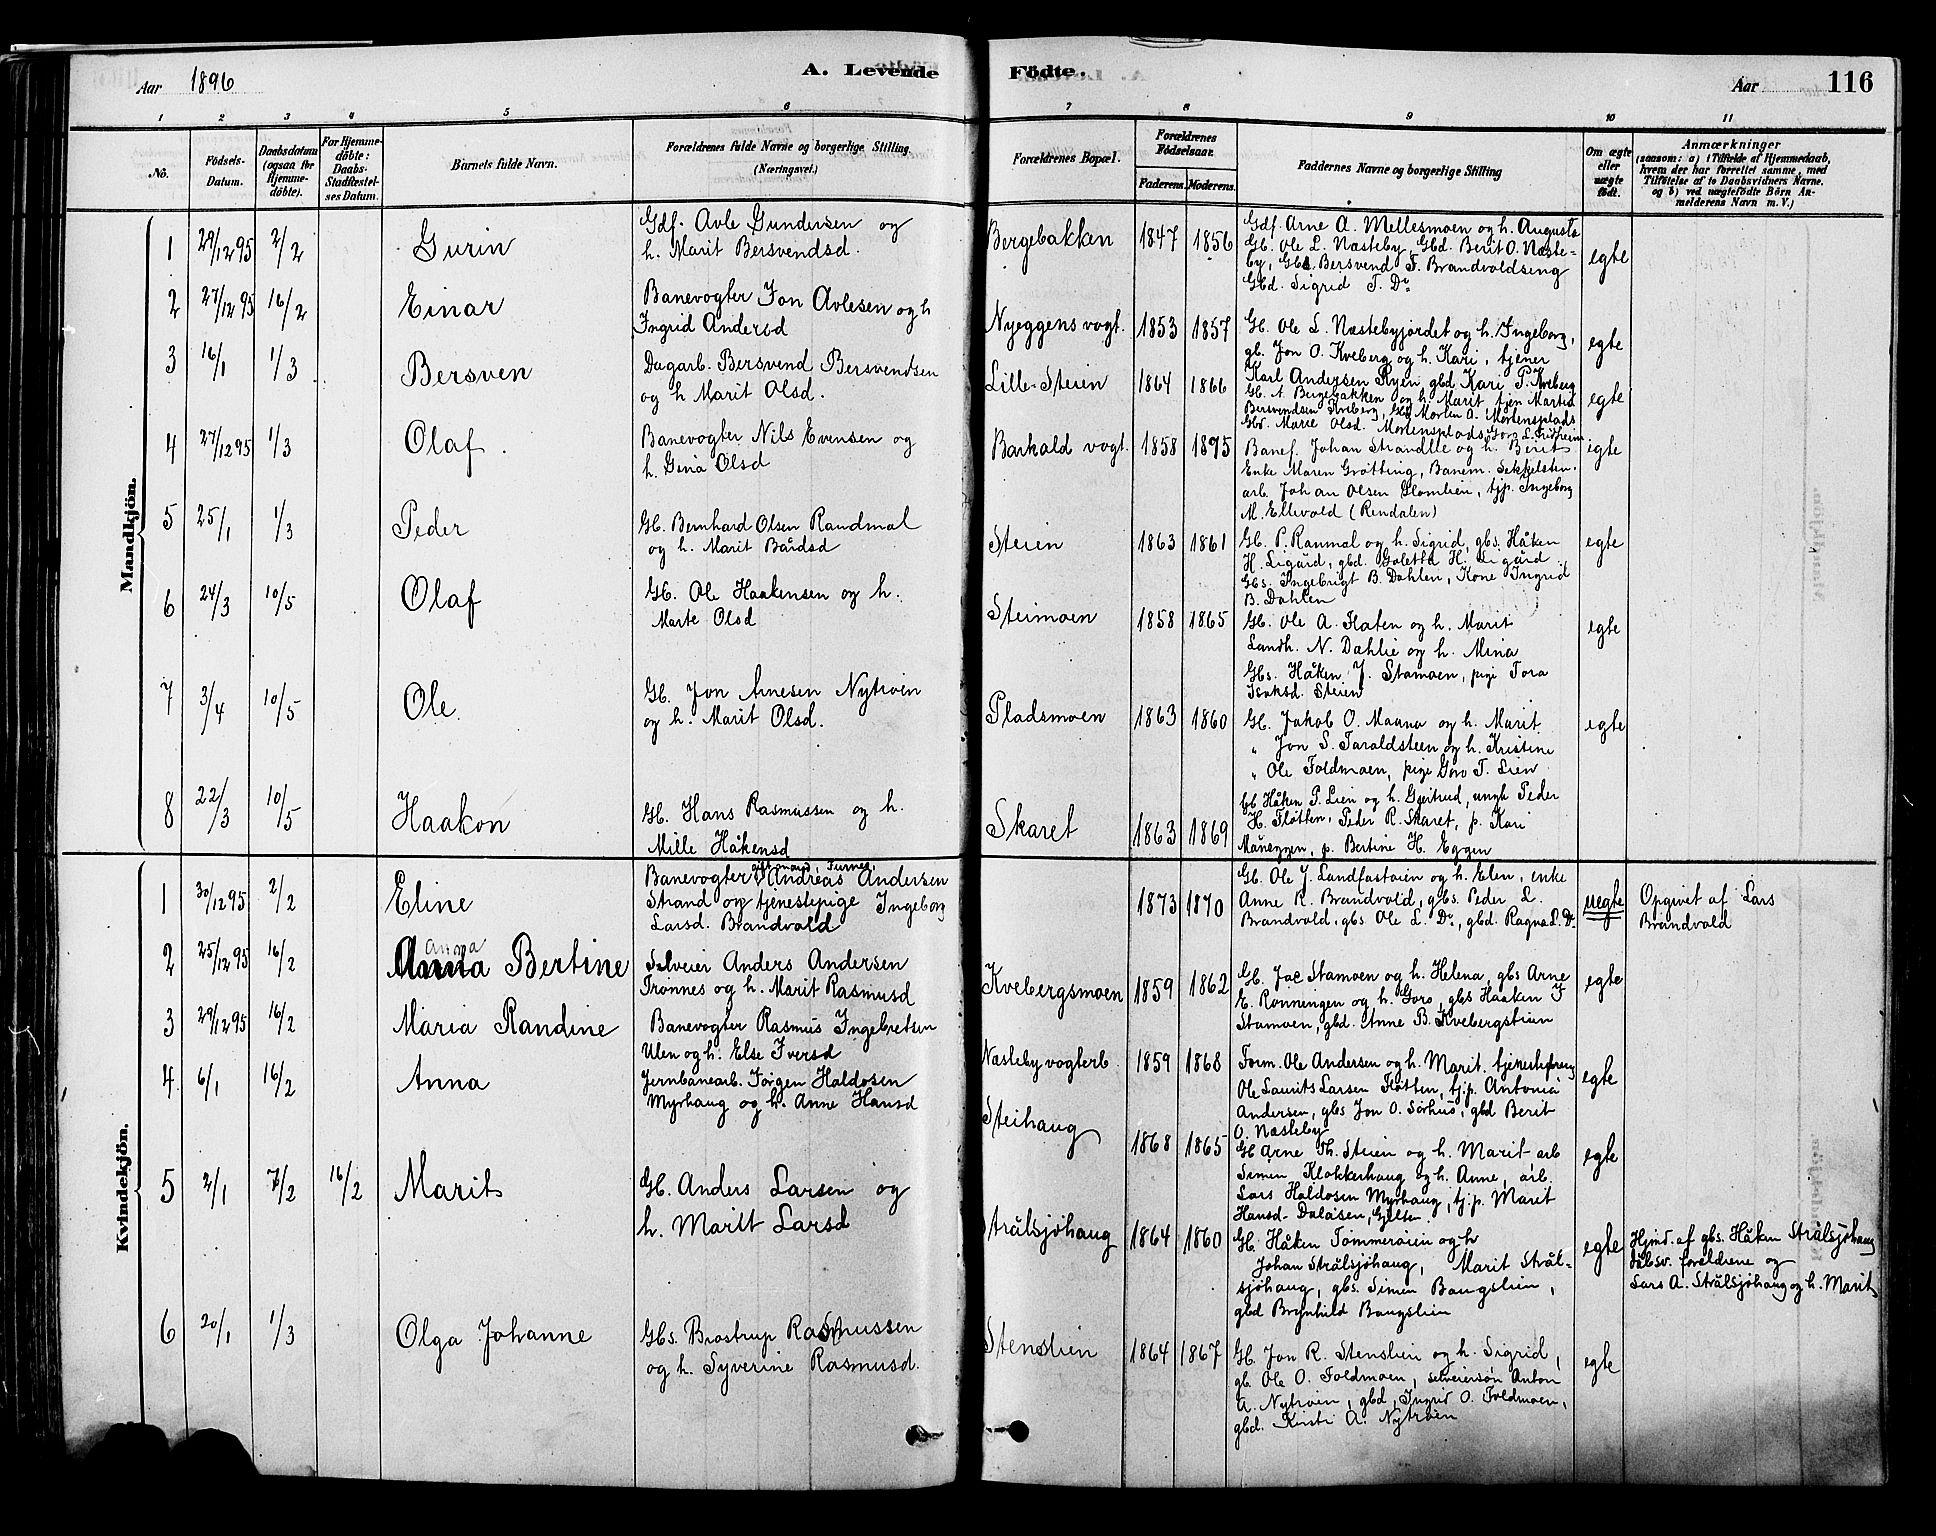 Aar 1896
A. Levende Födte.
Aar
116
1 2 3 4 5 6 7 8 9 10 11
No.
Födsels-Datum.
Daabsdatum (ogsaa for Hjemme-döbte).
For Hjemme-döbte: Daabs-Stadfæstel-ses Datum.
Barnets fulde Navn.
Forældrenes fulde Navne og borgerlige Stilling (Næringsvei.)
Forældrenes Bopæl.
Forældrenes Födselsaar.
Faderens. Moderens.
Faddernes Navne og borgerlige Stilling
Om ægte eller uægte födt.
Anmærkninger
(saasom: a) i Tilfælde af Hjemmedaab,
hvem der har forrettet samme, med
Tilföielse af to Daabsvidners Navne,
og b) ved uægtefödte Börn An-
melderens Navn m. V.)
Mandkjön.
1 29/12 95 2/2 Gurin
Gdf. Avle Gundersen og
h. Marit Bersvendsd.
Bergebakken 1847 1856
Gdf. Arne A. Mellesmoen og h. Augusta
Gb. Ole L. Næsteby, Gbd. Berit O. Næste-
by, Gbs. Bersvend T. Brandvoldseng
Gbd. Sigrid T. Do
egte
2 27/12 95 16/2 Einar
Banevogter Jon Avlesen og h
Ingrid Andersd
Nyeggens vogt. 1853 1857
Gb. Ole L. Næstebyjordet og h. Ingeborg,
gb. Jon O. Kveberg og h. Kari, tjener
Karl Andersen Ryen, gbd Kari P. Kveberg
egte
3 16/1 1/3 Bersven
Dagarb. Bersvend Bersvendsen
og h Marit Olsd.
Lille-Steien 1864 1866
Gb. A. Bergebakken og h. Marit tjen Martin
Bersvendsen Kveberg, Gbs Morten A. Mortensplads
Gbd. Marie Olsd. Mortensplads, Goro L.
egte
4 27/12 95 1/3 Olaf.
Banevogter Nils Evensen og
h. Gina Olsd
Barkald vogt. 1858 1895
Banef. Johan Strandlie og h. Berit
Enke Maren Grötting, Banem.
arb. Johan Olsen Glomlien, tjp. Ingeborg
M. Ellevold (Rendalen)
egte
5 25/1 1/3 Peder
Gb. Bernhard Olsen Randmæl
og h. Marit Bårdsd
Steien 1863 1861
Gb. P. Ranmæl og h. Sigrid, gbs. Håken
H. Ligård, gbd. Goletta H. Ligård
Gbs. Ingebrigt B. Dahlen, Kone Ingrid
B. Dahlen
egte
6 24/3 10/5 Olaf
Gb. Ole Haakensen og h.
Marte Olsd
Steimoen 1858 1865
Gb. Ole A. Flaten og h. Marit
Landh. N. Dahlie og h. Mina
Gbs. Håken J. Stamoen, pige Tora
Isaksd. Steien
egte
7 3/4 10/5 Ole.
Gb. Jon Arnesen Nytröen
og h. Marit Olsd.
Pladsmoen 1863 1860
Gb. Jakob O. Maana og h. Marit
" Jon S. Taraldsteen og h. Kristine
" Ole Foldmoen, pige Goro T. Lien
egte
8 22/3 10/5 Haakon
Gb. Hans Rasmussen og h.
Mille Håkensd
Skaret 1863 1869
Gb Håken P. Lien og h. Gjertrud, ungk Peder
H. Flötten, Peder R. Skaret, p. Kari
Måneggen, p. Bertine H. Eggen
Kvindekjön.
1 30/12 95 2/2 Eline
gift mand, Furnes,
Banevogter Andreas Andersen
Strand og tjenestepige Ingeborg
Larsd. Brandvold
1873 1870
Gb. Ole J. Landfastöien og h. Elen, enke
Anne R. Brandvold, gbs. Peder L.
Brandvold, gbs Ole L. Do, gbd. Ragna L. Do
uegte
Opgivet af Lars
Brandvold
2 25/12 95 16/2 Anna Anna Bertine
Selveier Anders Andersen
Trönnes og h. Marit Rasmusd
Kvebergsmoen 1859 1862
Gb. Jac Stamoen og h. Helena, gbs Arne
E. Rönningen og h. Goro, gbs Haaken J
Stamoen, gbd. Anne B. Kvebergstuen
egte
3 29/12 95 16/2 Maria Randine
Banevogter Rasmus Ingebretsen
Ulen og h. Else Iversd
Næsteby vogterb 1859 1868
Form. Ole Andersen og h. Marit, tjenestedreng
Ole Laurits Larsen Flötten, tj.p. Antonia
Andersen, gbs Jon O. Sörhus, gbd Berit
O. Næsteby
egte
4 6/1 16/2 Anna
Jernbanearb. Jörgen Haldosen
Myrhaug og h. Anne Hansd
Steihaug 1868 1865
Gb Arne Th. Steien og h. Marit arb
Simen Klokkerhaug og h. Anne, arb.
Lars Haldosen Myrhaug, tj.p. Marit
Hansd-Dalåsen,
egte
5 2/1 7/2 16/2 Marit
Gb. Anders Larsen og
h. Maritt Larsd
Strålsjöhaug 1864 1860
Gb. Håken Tommeröien og h
Johan Strålsjöhaug, Marit Strål-
sjöhaug, gbs. Simen Baugslien,
gbd Brynhild Baugslien
egte
Hjmd. af gbs. Håken Strålsjöhaug
Dåbsv. forældrene og
Lars A. Strålsjöhaug og h. Marit
6 20/1 1/3 Olga Johanne
Gbs. Brostrup Rasmussen
og h. Syverine Rasmusd.
Stenslien 1864 1867
Gb. Jon R. Stenslien og h. Sigrid,
gb. Ole O. Foldmoen, selveiersön Anton
A. Nytröen, gbd, Ingrid O. Foldmoen,
gbd. Kirsti A. Nytröen
egte